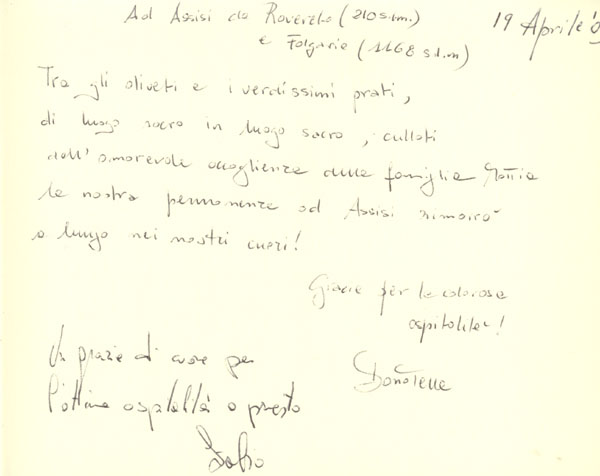 Ad Assisi da Rovereto (210 s.l.m.)
e Folgaria (1168 s.l.m)
19 Aprile
Tra gli oliveti e i verdissimi prati,
di luogo sacro in luogo sacro, cullati
dall'amorevole accoglienza della famiglia
la nostra permanenza ad Assisi rimarrà
a lungo nei nostri cuori!
Grazie per la calorosa
ospitalità!
Donatella
Un grazie di cuore per
l'ottima ospitalità a presto
Fabio